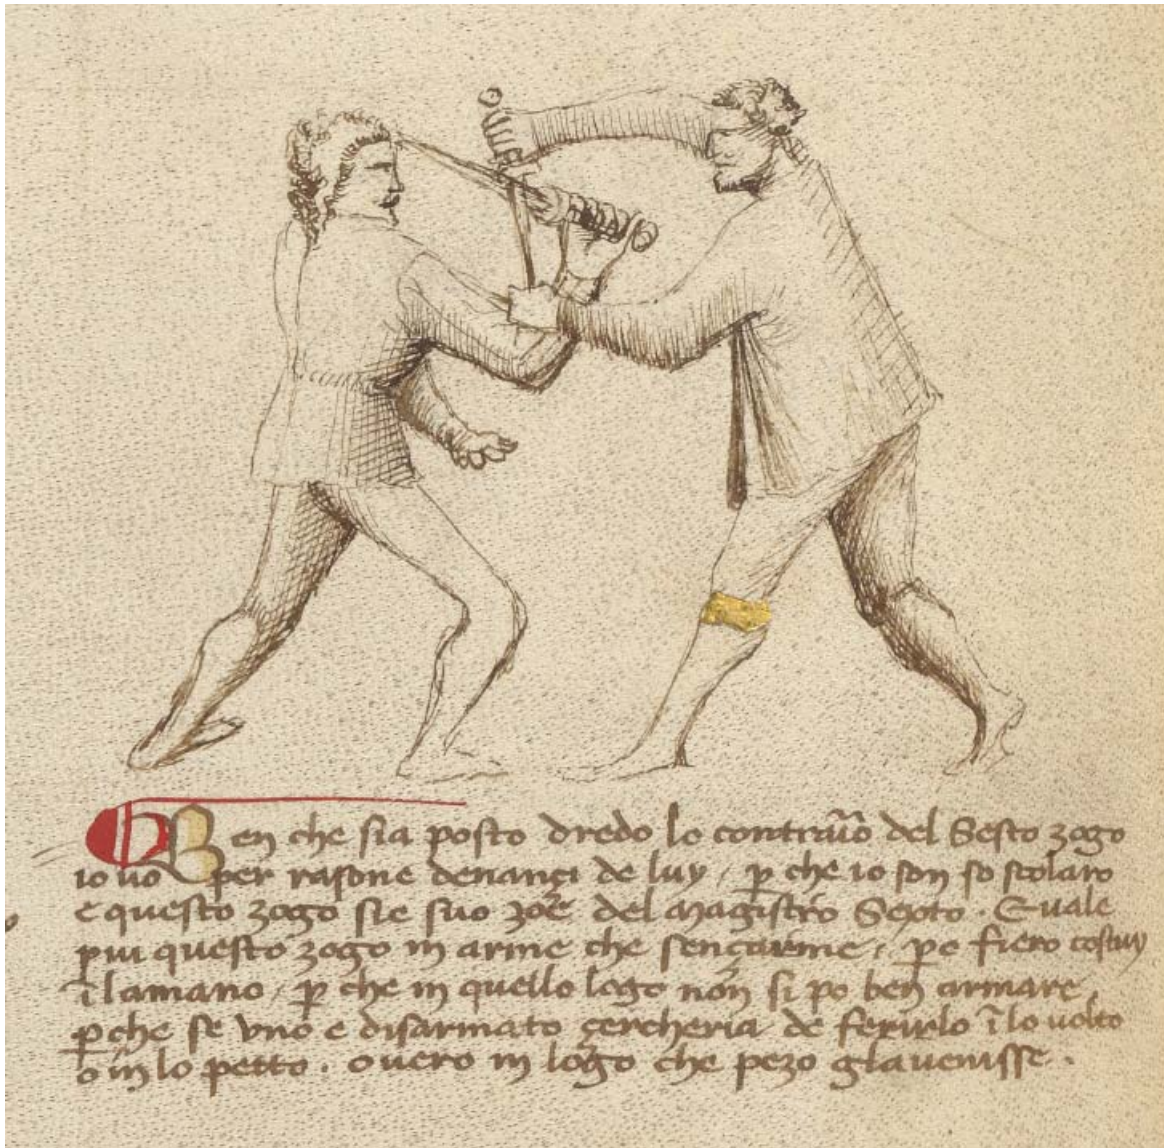 Ben che sia posto dredo lo contraīo del Sesto zogo
io uo per rasone denançi de luy, p che io son so scolaro
e questo zogo sie suo zoe del magistro Sexto. E uale
piu questo zogo in arme che sençarme, pe fiero costuy
ī la mano, p che in quello logo non si po ben armare,
pche se uno e disarmato çercheria de ferirlo ī lo uolto
o in lo petto. o uero in logo che pezo gl auenisse.